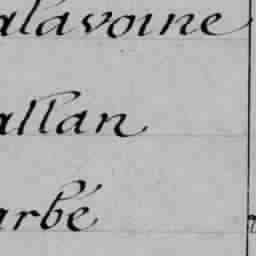 alavoine
allan
arbé